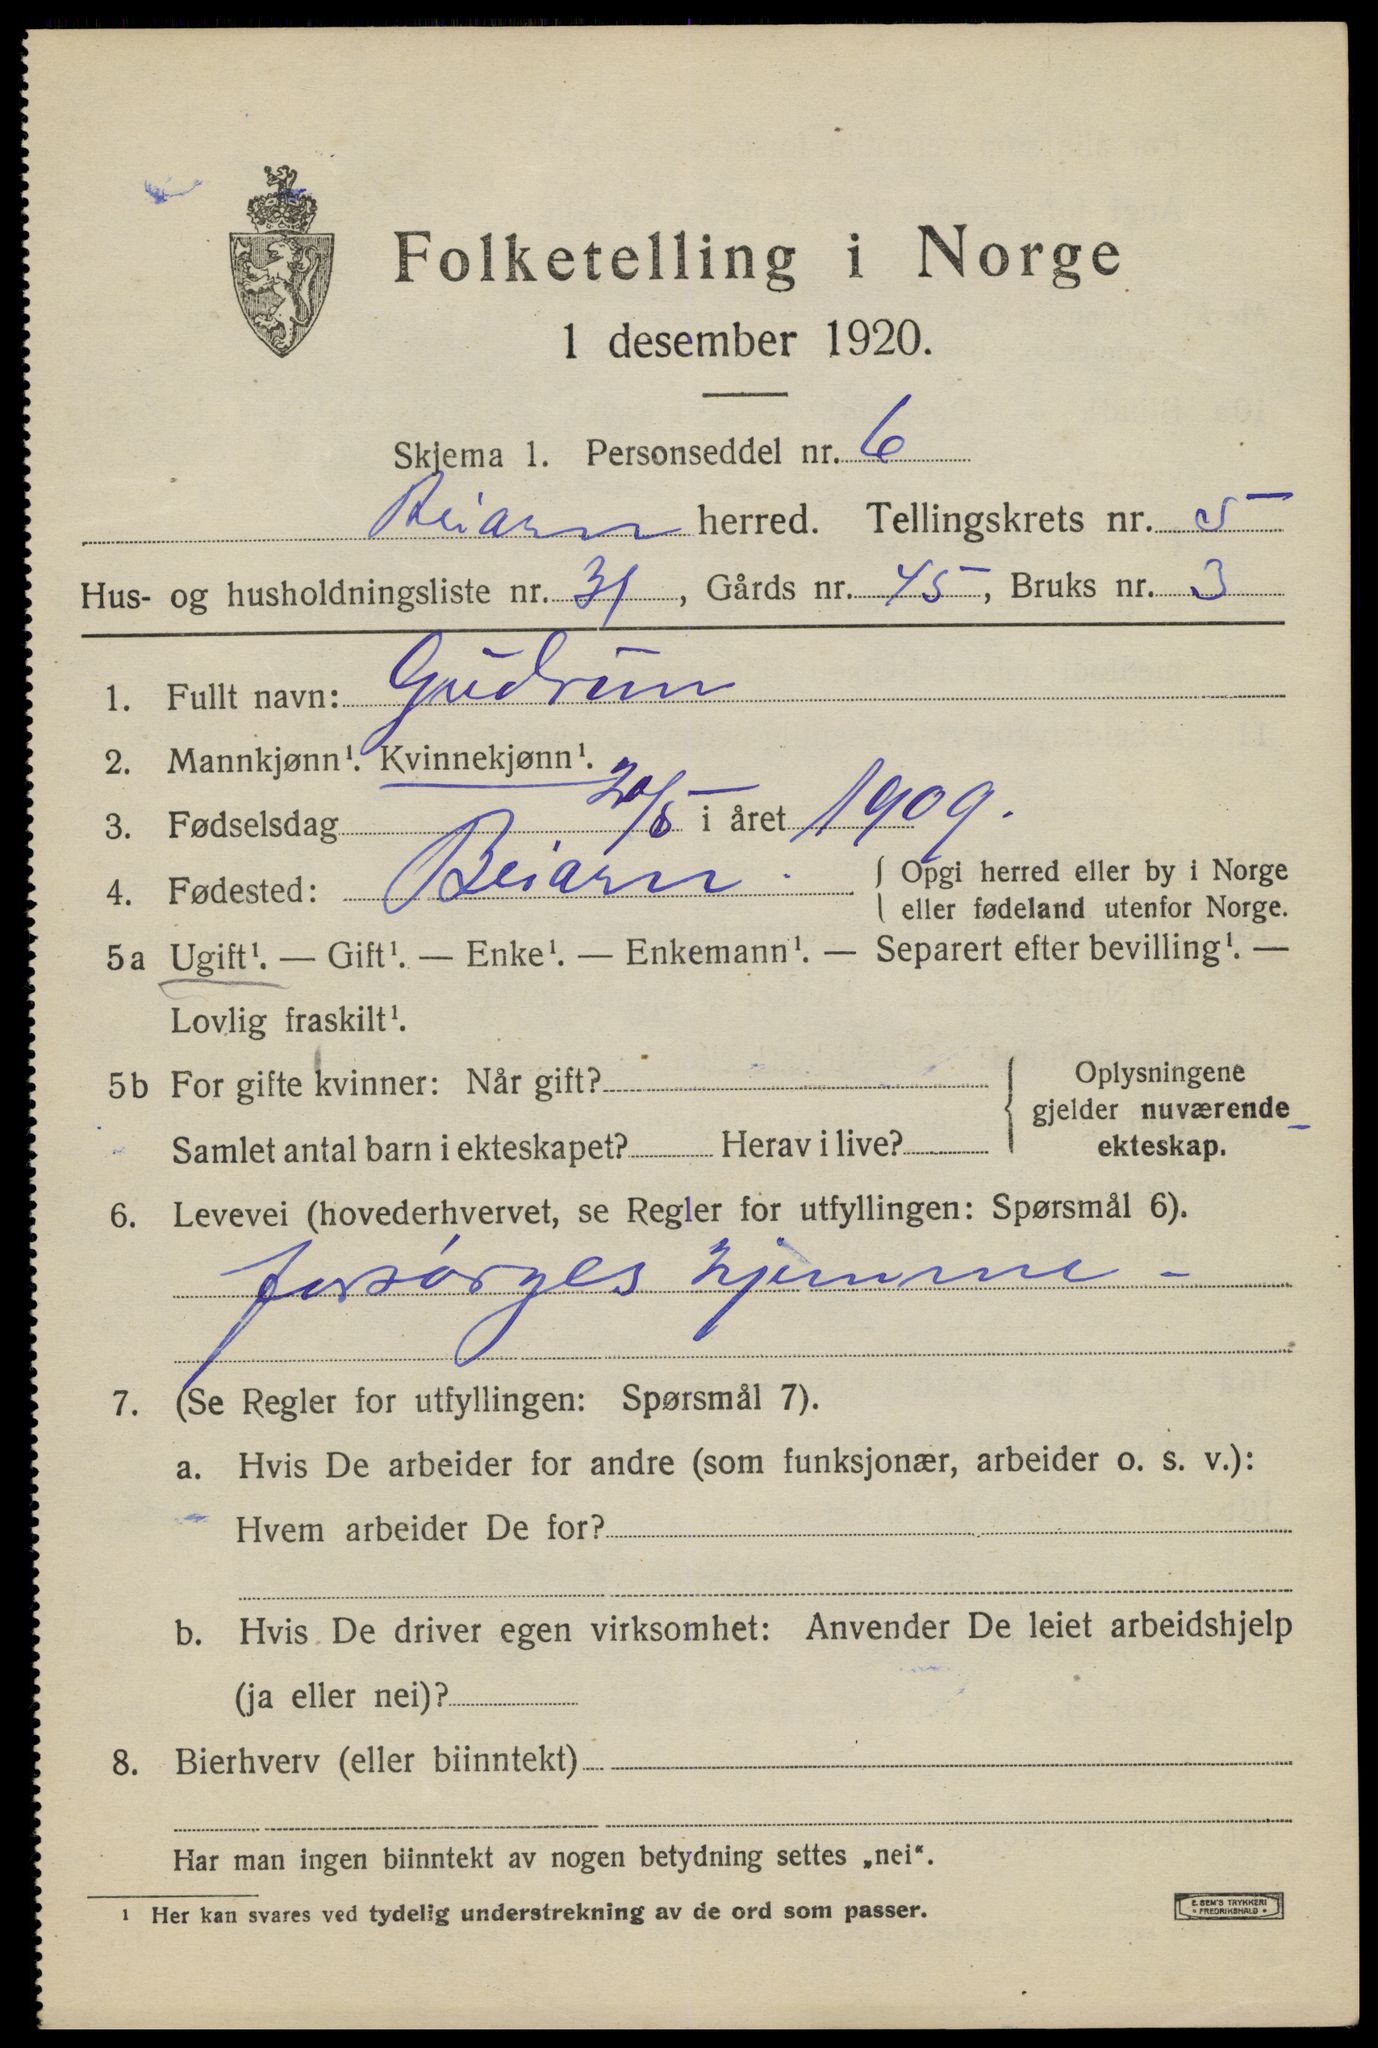 Folketelling i Norge
1 desember 1920.
Skjema 1. Personseddel nr. 6
Beiarn herred. Tellingskrets nr. 5
Hus- og husholdningsliste nr. 31, Gårds nr. 45, Bruks nr. 3
1. Fullt navn: Gudrun
2. Mannkjønn¹. Kvinnekjønn¹.
3. Fødselsdag 20/5 i året 1909.
4. Fødested: Beiarn. { Opgi herred eller by i Norge
eller fødeland utenfor Norge.
5a Ugift¹. — Gift¹. — Enke¹. — Enkemann¹. — Separert efter bevilling¹. —
Lovlig fraskilt¹.
5b For gifte kvinner: Når gift? { Oplysningene
gjelder nuværende
Samlet antal barn i ekteskapet? Herav i live? ekteskap.
6. Levevei (hovederhvervet, se Regler for utfyllingen: Spørsmål 6).
forsørges hjemme -
7. (Se Regler for utfyllingen: Spørsmål 7).
a. Hvis De arbeider for andre (som funksjonær, arbeider o. s. v.):
Hvem arbeider De for?
b. Hvis De driver egen virksomhet: Anvender De leiet arbeidshjelp
(ja eller nei)?
8. Bierhverv (eller biinntekt)
Har man ingen biinntekt av nogen betydning settes „nei“.
¹ Her kan svares ved tydelig understrekning av de ord som passer.
E. SEM'S TRYKKERI
* FREDRIKSHALD *